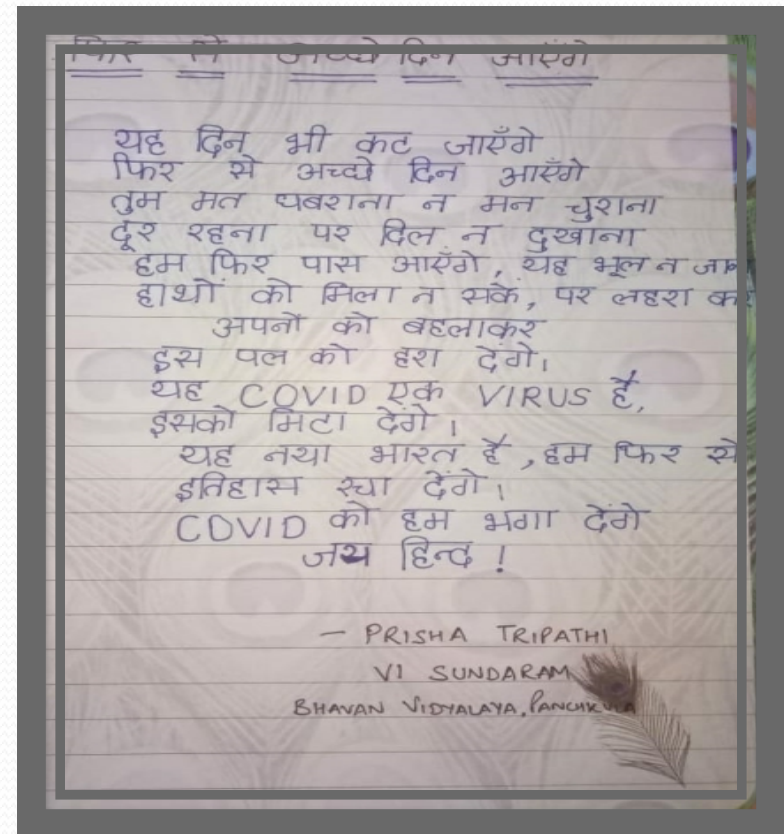 फिर से अच्छे दिन आएँगे
यह दिन भी कट जाएँगे
फिर से अच्छे दिन आएँगे
तुम मत घबराना न मन चुराना
दूर रहना पर दिल न दुखाना
हम फिर पास आएँगे, यह भूल न
हाथों को मिला न सकें, पर लहरा कर
अपनों को बहलाकर
इस पल को हरा देंगे।
यह COVID एक VIRUS है,
इसको मिटा देंगे।
यह नया भारत है, हम फिर से
इतिहास रचा देंगे।
COVID को हम भगा देंगे
जय हिन्द !
- PRISHA TRIPATHI
VI SUNDARAM
BHAVAN VIDYALAYA, PANCHKULA